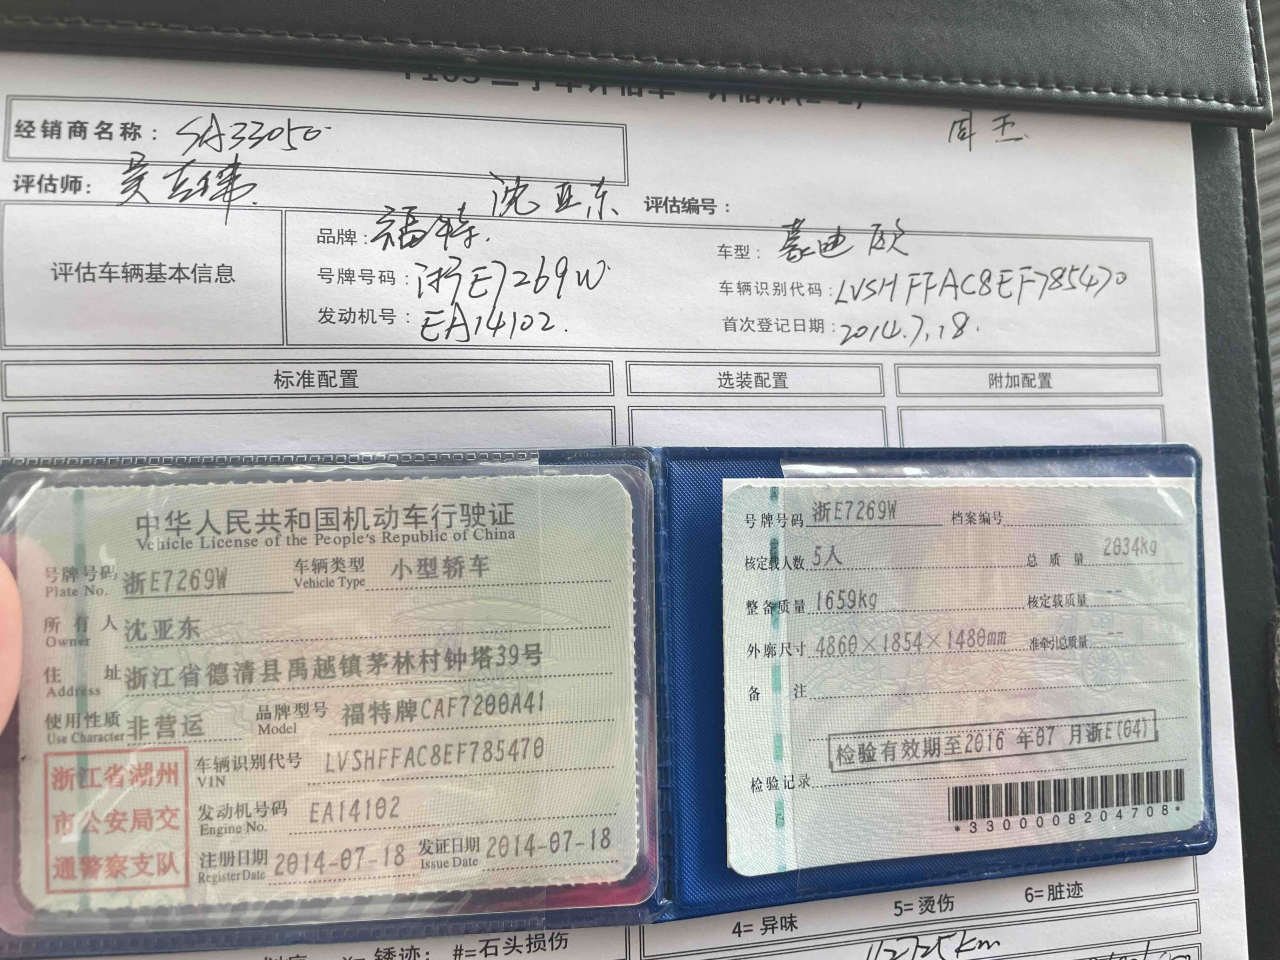 经销商名称： SA33050
周玉
评估师： 沈亚东 评估编号：
评估车辆基本信息
品牌：福特. 车型：蒙迪欧
号牌号码：浙E7269W 车辆识别代码：LVSHFFAC8EF785470
发动机号：EA14102. 首次登记日期：2014.7.18.
标准配置 选装配置 附加配置
中华人民共和国机动车行驶证
Vehicle License of the People's Republic of China
号牌号码 浙E7269W 车辆类型 小型轿车
Plate No. Vehicle Type
所有人 沈亚东
Owner
住址 浙江省德清县禹越镇茅林村钟塔39号
Address
使用性质 非营运 品牌型号 福特牌CAF7200A41
Use Character Model
浙江省湖州
市公安局交
通警察支队
车辆识别代号 LVSHFFAC8EF785470
VIN
发动机号码 EA14102
Engine No.
注册日期 2014-07-18 发证日期 2014-07-18
Register Date Issue Date
号牌号码 浙E7269W 档案编号
核定载人数 5人 总质量 2034kg
整备质量 1659kg 核定载质量 --
外廓尺寸 4860×1854×1480mm 准牵引总质量 --
备注
检验有效期至2016 年07 月浙E(04)
检验记录
*3300008204708*
4= 异味 5= 烫伤 6= 脏迹
锈迹； #=石头损伤